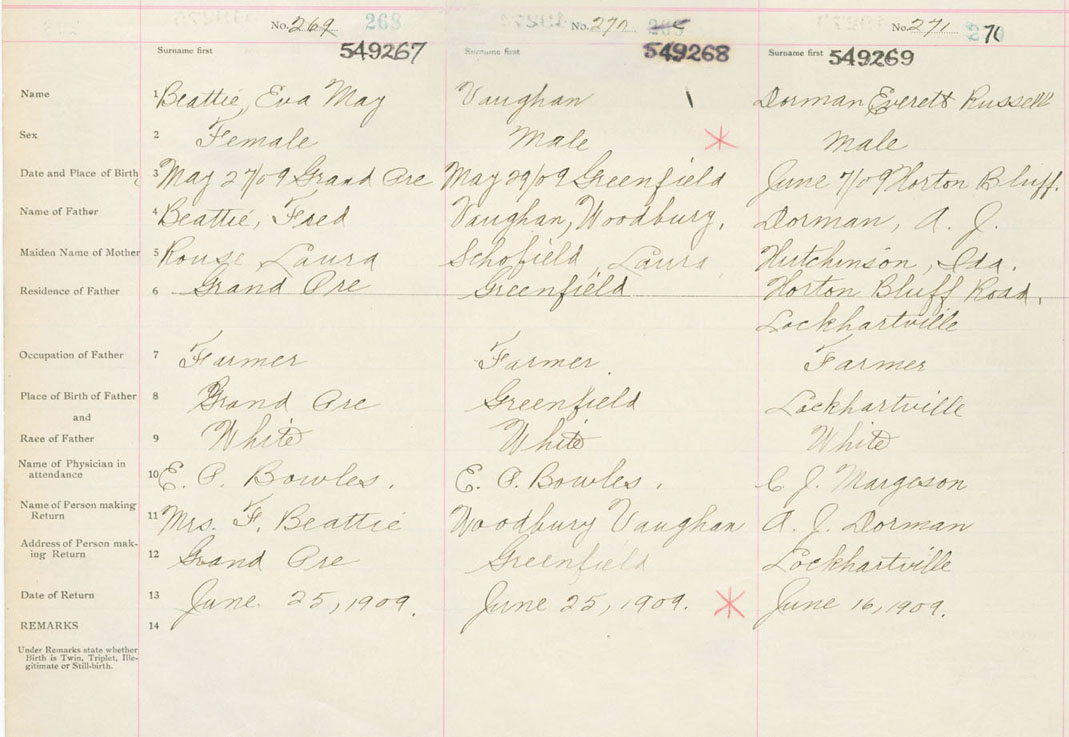 No. 269 268 No. 270 No. 271 70
Surname first 549267 Surname first 549268 Surname first 549269
Name 1 Beattie, Eva May Vaughan Dorman Everett Russell
Sex 2 Female Male Male
Date and Place of Birth 3 May 27/09 Grand Pre May 29/09 Greenfield June 7/09 Horton Bluff.
Name of Father 4 Beattie, Fred Vaughan, Woodbury. Dorman, A. J.
Maiden Name of Mother 5 Rouse Laura Schofield, Laura Hutchinson, Ida.
Residence of Father 6 Grand Pre Greenfield Horton Bluff Road,
Lockhartville
Occupation of Father 7 Farmer Farmer. Farmer
Place of Birth of Father 8 Grand Pre Greenfield Lockhartville
and
Race of Father 9 White White White
Name of Physician in
attendance 10 E. P. Bowles. E. P. Bowles. C J. Margeson
Name of Person making
Return 11 Mrs. F. Beattie Woodbury Vaughan A. J. Dorman
Address of Person mak-
ing Return 12 Grand Pre Greenfield Lockhartville
Date of Return 13 June. 25, 1909. June 25, 1909. June 16, 1909.
REMARKS 14
Under Remarks state whether
Birth is Twin, Triplet, Ille-
gitimate or Still-birth.